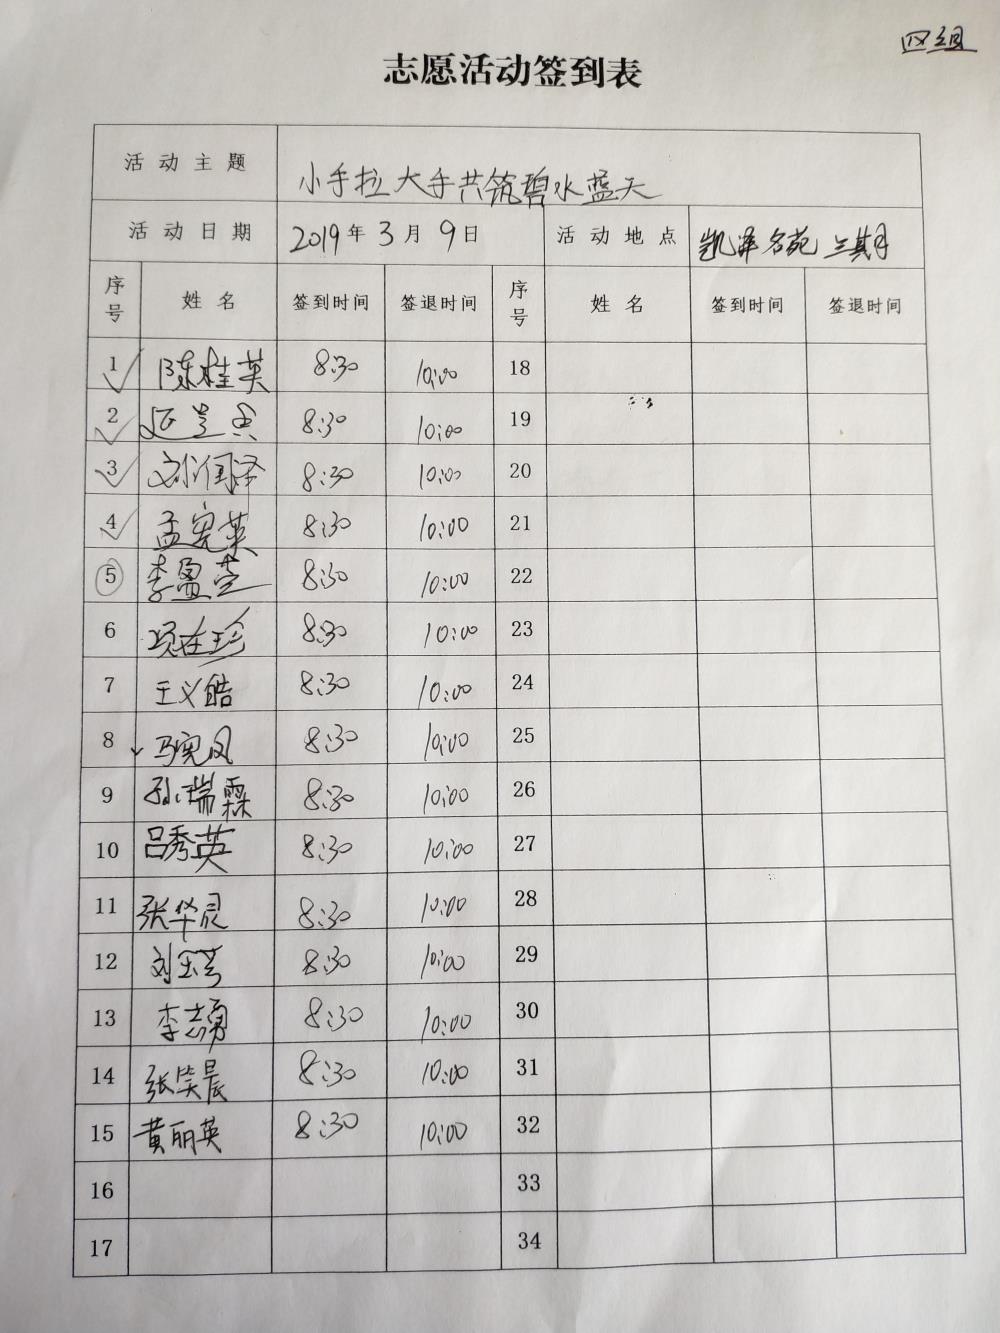 四组
志愿活动签到表
活动主题 小手拉大手共筑碧水蓝天
活动日期 2019年3月9日 活动地点 凯泽名苑三期
序号 姓名 签到时间 签退时间 序号 姓名 签到时间 签退时间
1 陈桂英 8:30 10:00 18
2 8:30 10:00 19
3 刘润泽 8:30 10:00 20
4 孟宪英 8:30 10:00 21
5 李盈芝 8:30 10:00 22
6 项在珍 8:30 10:00 23
7 王义皓 8:30 10:00 24
8 马宪凤 8:30 10:00 25
9 孙瑞霖 8:30 10:00 26
10 吕秀英 8:30 10:00 27
11 张华辰 8:30 10:00 28
12 刘玉芳 8:30 10:00 29
13 李志勇 8:30 10:00 30
14 张笑晨 8:30 10:00 31
15 黄丽英 8:30 10:00 32
16 33
17 34